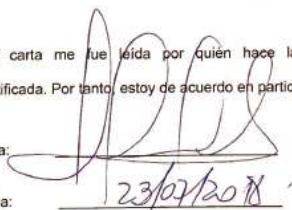 carta me fue leída por quién hace la
ificada. Por tanto, estoy de acuerdo en partic
a:
a: 23/07/2018